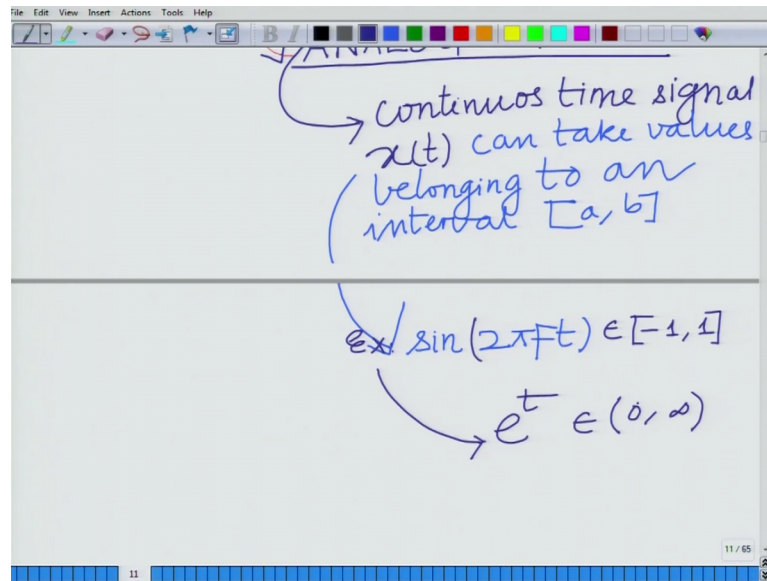 File Edit View Insert Actions Tools Help
B I
continuos time signal
x(t) can take values
belonging to an
interval [a, b]
Ex sin(2πFt) ∈ [-1, 1]
e^t ∈ (0, ∞)
11 / 65
11